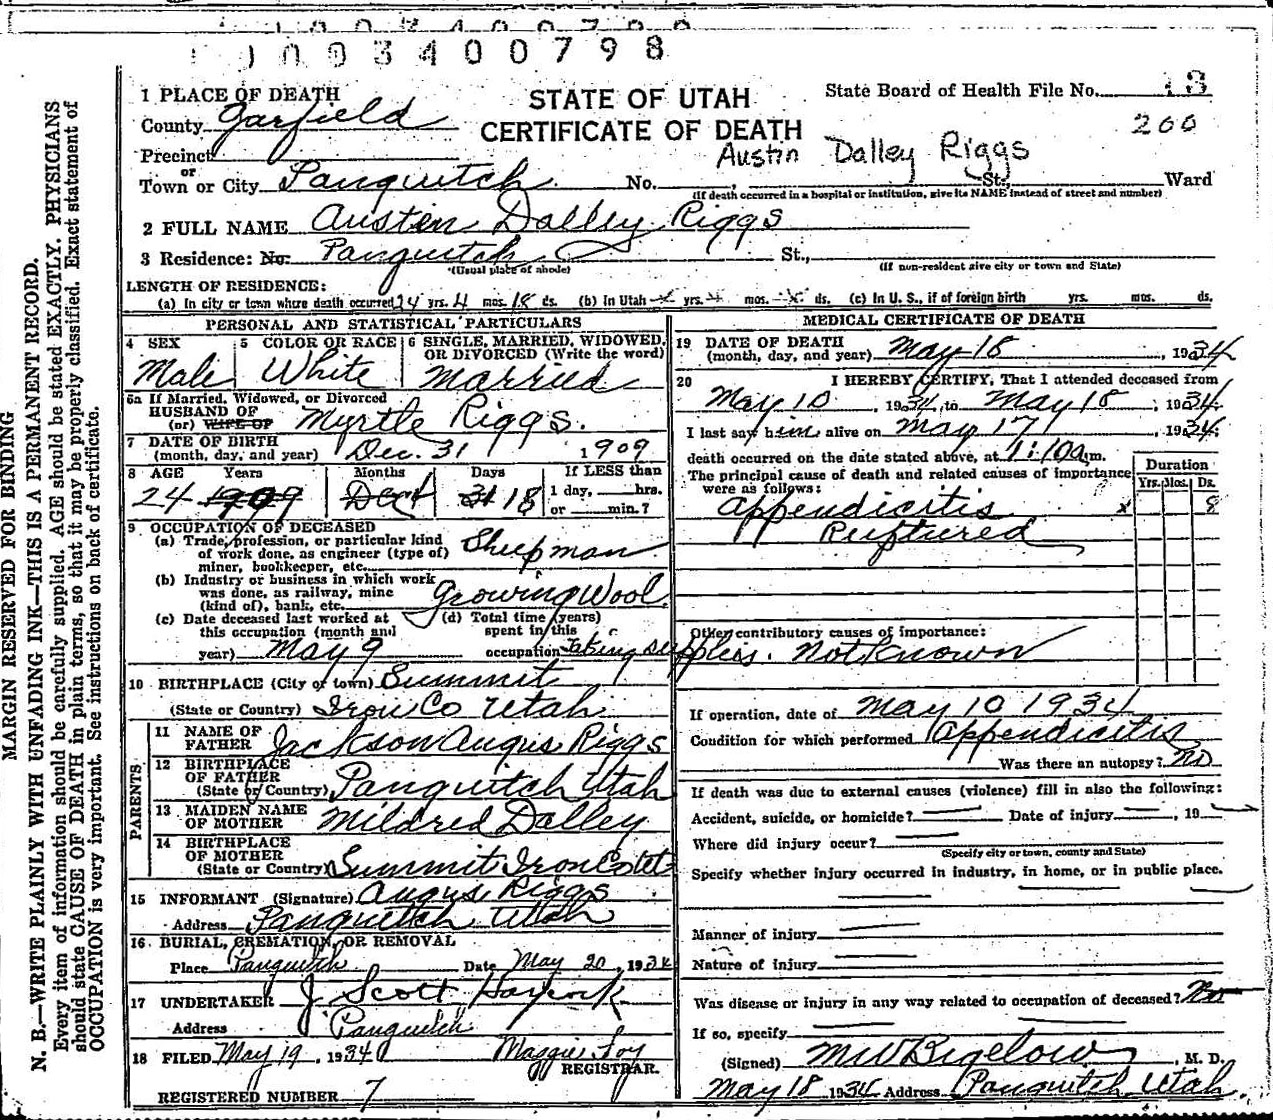 1 0 0 3 4 0 0 7 9 8
1 PLACE OF DEATH
County Garfield
Precinct
or
Town or City Panguitch No. , St., Ward
(If death occurred in a hospital or institution, give its NAME instead of street and number)
STATE OF UTAH
CERTIFICATE OF DEATH
State Board of Health File No. 13
200
Austin Dalley Riggs
2 FULL NAME Austin Dalley Riggs
3 Residence: No. Panguitch St.,
(Usual place of abode) (If non-resident give city or town and State)
LENGTH OF RESIDENCE:
(a) In city or town where death occurred 24 yrs. 4 mos. 18 ds. (b) In Utah x yrs. x mos. x ds. (c) In U. S., if of foreign birth yrs. mos. ds.
PERSONAL AND STATISTICAL PARTICULARS
4 SEX
Male
5 COLOR OR RACE
White
6 SINGLE, MARRIED, WIDOWED, OR DIVORCED (Write the word)
Married
6a If Married, Widowed, or Divorced
HUSBAND OF
(or) WIFE OF Myrtle Riggs.
7 DATE OF BIRTH
(month, day, and year) Dec. 31 1909
8 AGE Years Months Days If LESS than
24 1909 Dec 4 31 18 1 day, hrs.
or min.?
9 OCCUPATION OF DECEASED
(a) Trade, profession, or particular kind
of work done, as engineer (type of)
miner, bookkeeper, etc. Sheepman
(b) Industry or business in which work
was done, as railway, mine
(kind of), bank, etc. Growing Wool
(c) Date deceased last worked at
this occupation (month and
year) May 9
(d) Total time (years)
spent in this
occupation Taking supplies.
10 BIRTHPLACE (City or town) Summit
(State or Country) Iron Co Utah
PARENTS
11 NAME OF
FATHER Jackson Augus Riggs
12 BIRTHPLACE
OF FATHER
(State or Country) Panguitch Utah
13 MAIDEN NAME
OF MOTHER Mildred Dalley
14 BIRTHPLACE
OF MOTHER
(State or Country) Summit Iron Co Ut
15 INFORMANT (Signature) Augus Riggs
Address Panguitch Utah
16 BURIAL, CREMATION, OR REMOVAL
Place Panguitch Date May 20, 1934
17 UNDERTAKER J. Scott Haycock
Address Panguitch
18 FILED May 19, 1934 Maggie Foy
REGISTRAR.
REGISTERED NUMBER 7
MEDICAL CERTIFICATE OF DEATH
19 DATE OF DEATH
(month, day, and year) May 18, 1934
20 I HEREBY CERTIFY, That I attended deceased from
May 10, 1934, to May 18, 1934.
I last saw him alive on May 17, 1934.
death occurred on the date stated above, at 1:10 a.m.
The principal cause of death and related causes of importance
were as follows:
Duration
Yrs. Mos. Ds.
Appendicitis x 8
Ruptured
Other contributory causes of importance:
Not Known
If operation, date of May 10 1934
Condition for which performed Appendicitis
Was there an autopsy? No
If death was due to external causes (violence) fill in also the following:
Accident, suicide, or homicide? Date of injury , 19
Where did injury occur?
(Specify city or town, county and State)
Specify whether injury occurred in industry, in home, or in public place.
Manner of injury
Nature of injury
Was disease or injury in any way related to occupation of deceased? No
If so, specify
(Signed) M W Bigelow, M. D.
May 18 1934 Address Panguitch Utah.
MARGIN RESERVED FOR BINDING
N. B.—WRITE PLAINLY WITH UNFADING INK—THIS IS A PERMANENT RECORD.
Every item of information should be carefully supplied. AGE should be stated EXACTLY. PHYSICIANS
should state CAUSE OF DEATH in plain terms, so that it may be properly classified. Exact statement of
OCCUPATION is very important. See instructions on back of certificate.